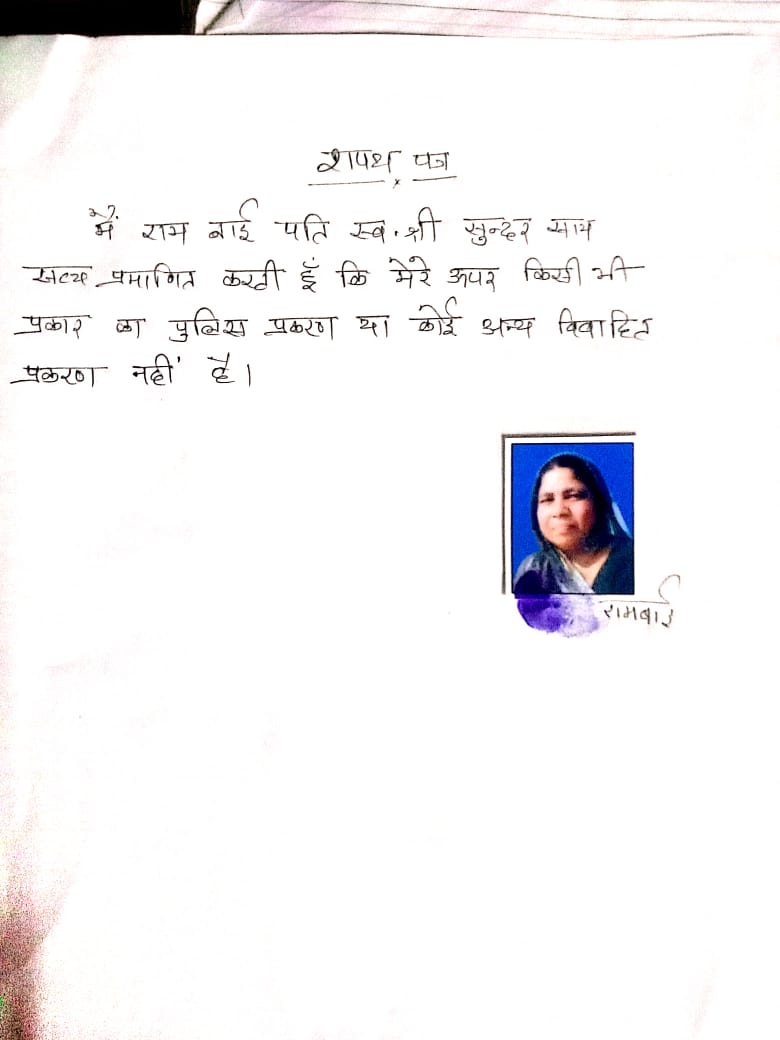 शपथ पत्र
मैं राम बाई पति स्व. श्री सुन्दर साय
सत्य प्रमाणित करती हूँ कि मेरे ऊपर किसी भी
प्रकार का पुलिस प्रकरण या कोई अन्य विवादित
प्रकरण नहीं है।
रामबाई